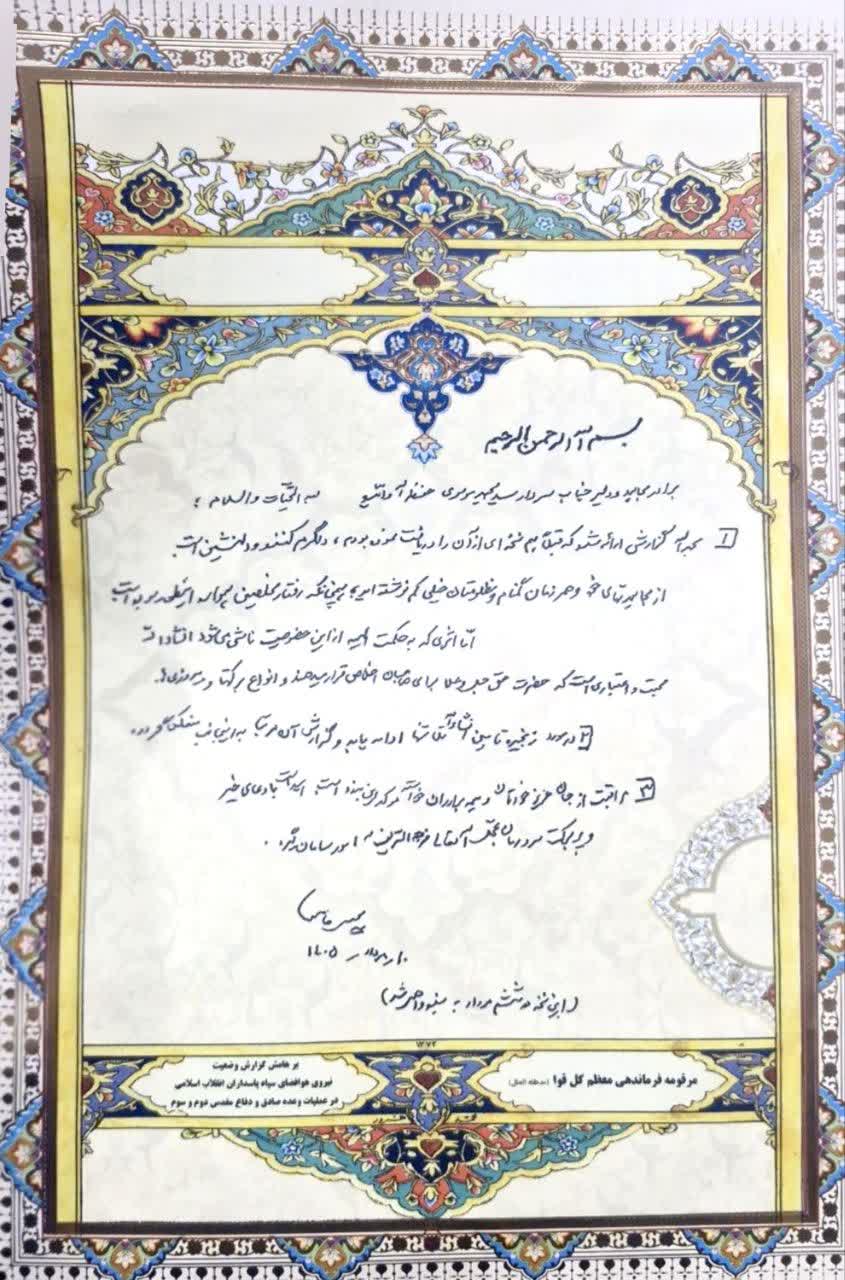 بسم الله الرحمن الرحیم
برادر مجاهد و دلیر جناب سردار سید مجید موسوی حفظه الله واتبع له التحیات والسلام ؛
۱ بحمدالله گزارشی ارائه شد که قبلاً هم نسخه‌ای از آن را دریافت نموده بودم ، دلگرم کننده و دلنشین است
از مجاهدتهای شما و همرزمان گمنام و مظلومتان خیلی کم نوشته‌ایم همچنانکه رفتار مخلصین همواره اینطور بوده است
امّا اثری که به حکمت الهیه از این خصوصیت ناشی می‌شود
محبت و اعتباری است که حضرت حق جل و علا برای صاحبان اخلاص قرار میدهند و انواع برکتها و پیروزی‌ها.
۲ در مورد زنجیره تامین ادامه یابد و گزارش آن مرتبا به اینجانب منعکس گردد.
۳ مراقبت از جان عزیز خودتان و همه برادران خواسته مؤکد این بنده است. با دعای خیر
و به برکت سرورمان عجّل الله تعالی فرجه الشریف امور سامان گیرد .
۱۰ مرداد ۱۴۰۵
(این نسخه در ششم مرداد به بنده واصل شد)
۱۲۷۲
مرقومه فرماندهی معظم کل قوا (مدظله العالی)
بر هامش گزارش وضعیت
نیروی هوافضای سپاه پاسداران انقلاب اسلامی
در عملیات وعده صادق و دفاع مقدس دوم و سوم